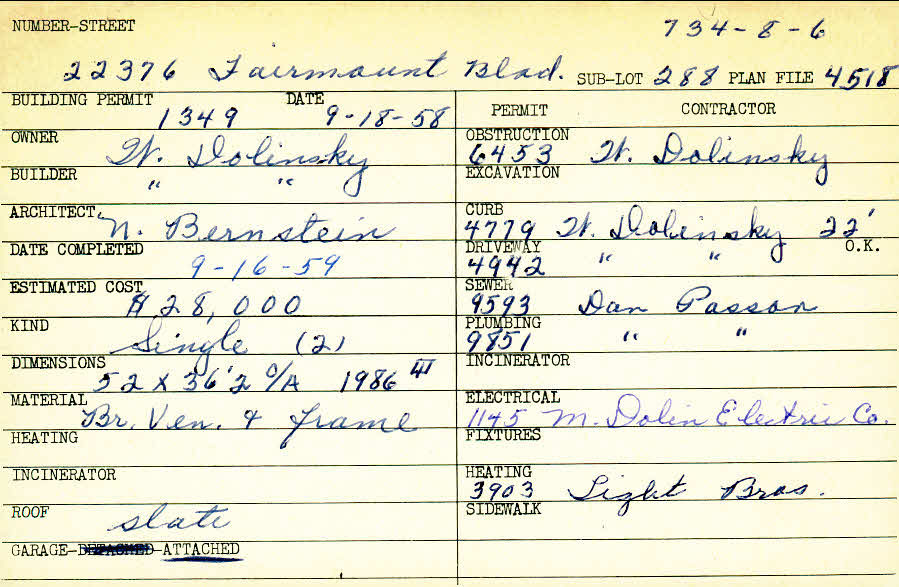 NUMBER-STREET 734-8-6
22376 Fairmount Blvd. SUB-LOT 288 PLAN FILE 4518
BUILDING PERMIT 1349 DATE 9-18-58
OWNER W. Dolinsky
BUILDER " "
ARCHITECT N. Bernstein
DATE COMPLETED 9-16-59
ESTIMATED COST $28,000
KIND Single (2)
DIMENSIONS 52 x 36'2 O/A 1986
MATERIAL Br. Ven. & frame
HEATING
INCINERATOR
ROOF slate
GARAGE-DETACHED-ATTACHED
PERMIT CONTRACTOR
OBSTRUCTION 6453 W. Dolinsky
EXCAVATION
CURB 4779 W. Dolinsky 22'
DRIVEWAY 4942 " " O.K.
SEWER 9593 Dan Passon
PLUMBING 9851 " "
INCINERATOR
ELECTRICAL 1145 M. Dolin Electric Co.
FIXTURES
HEATING 3903 Light Bros.
SIDEWALK